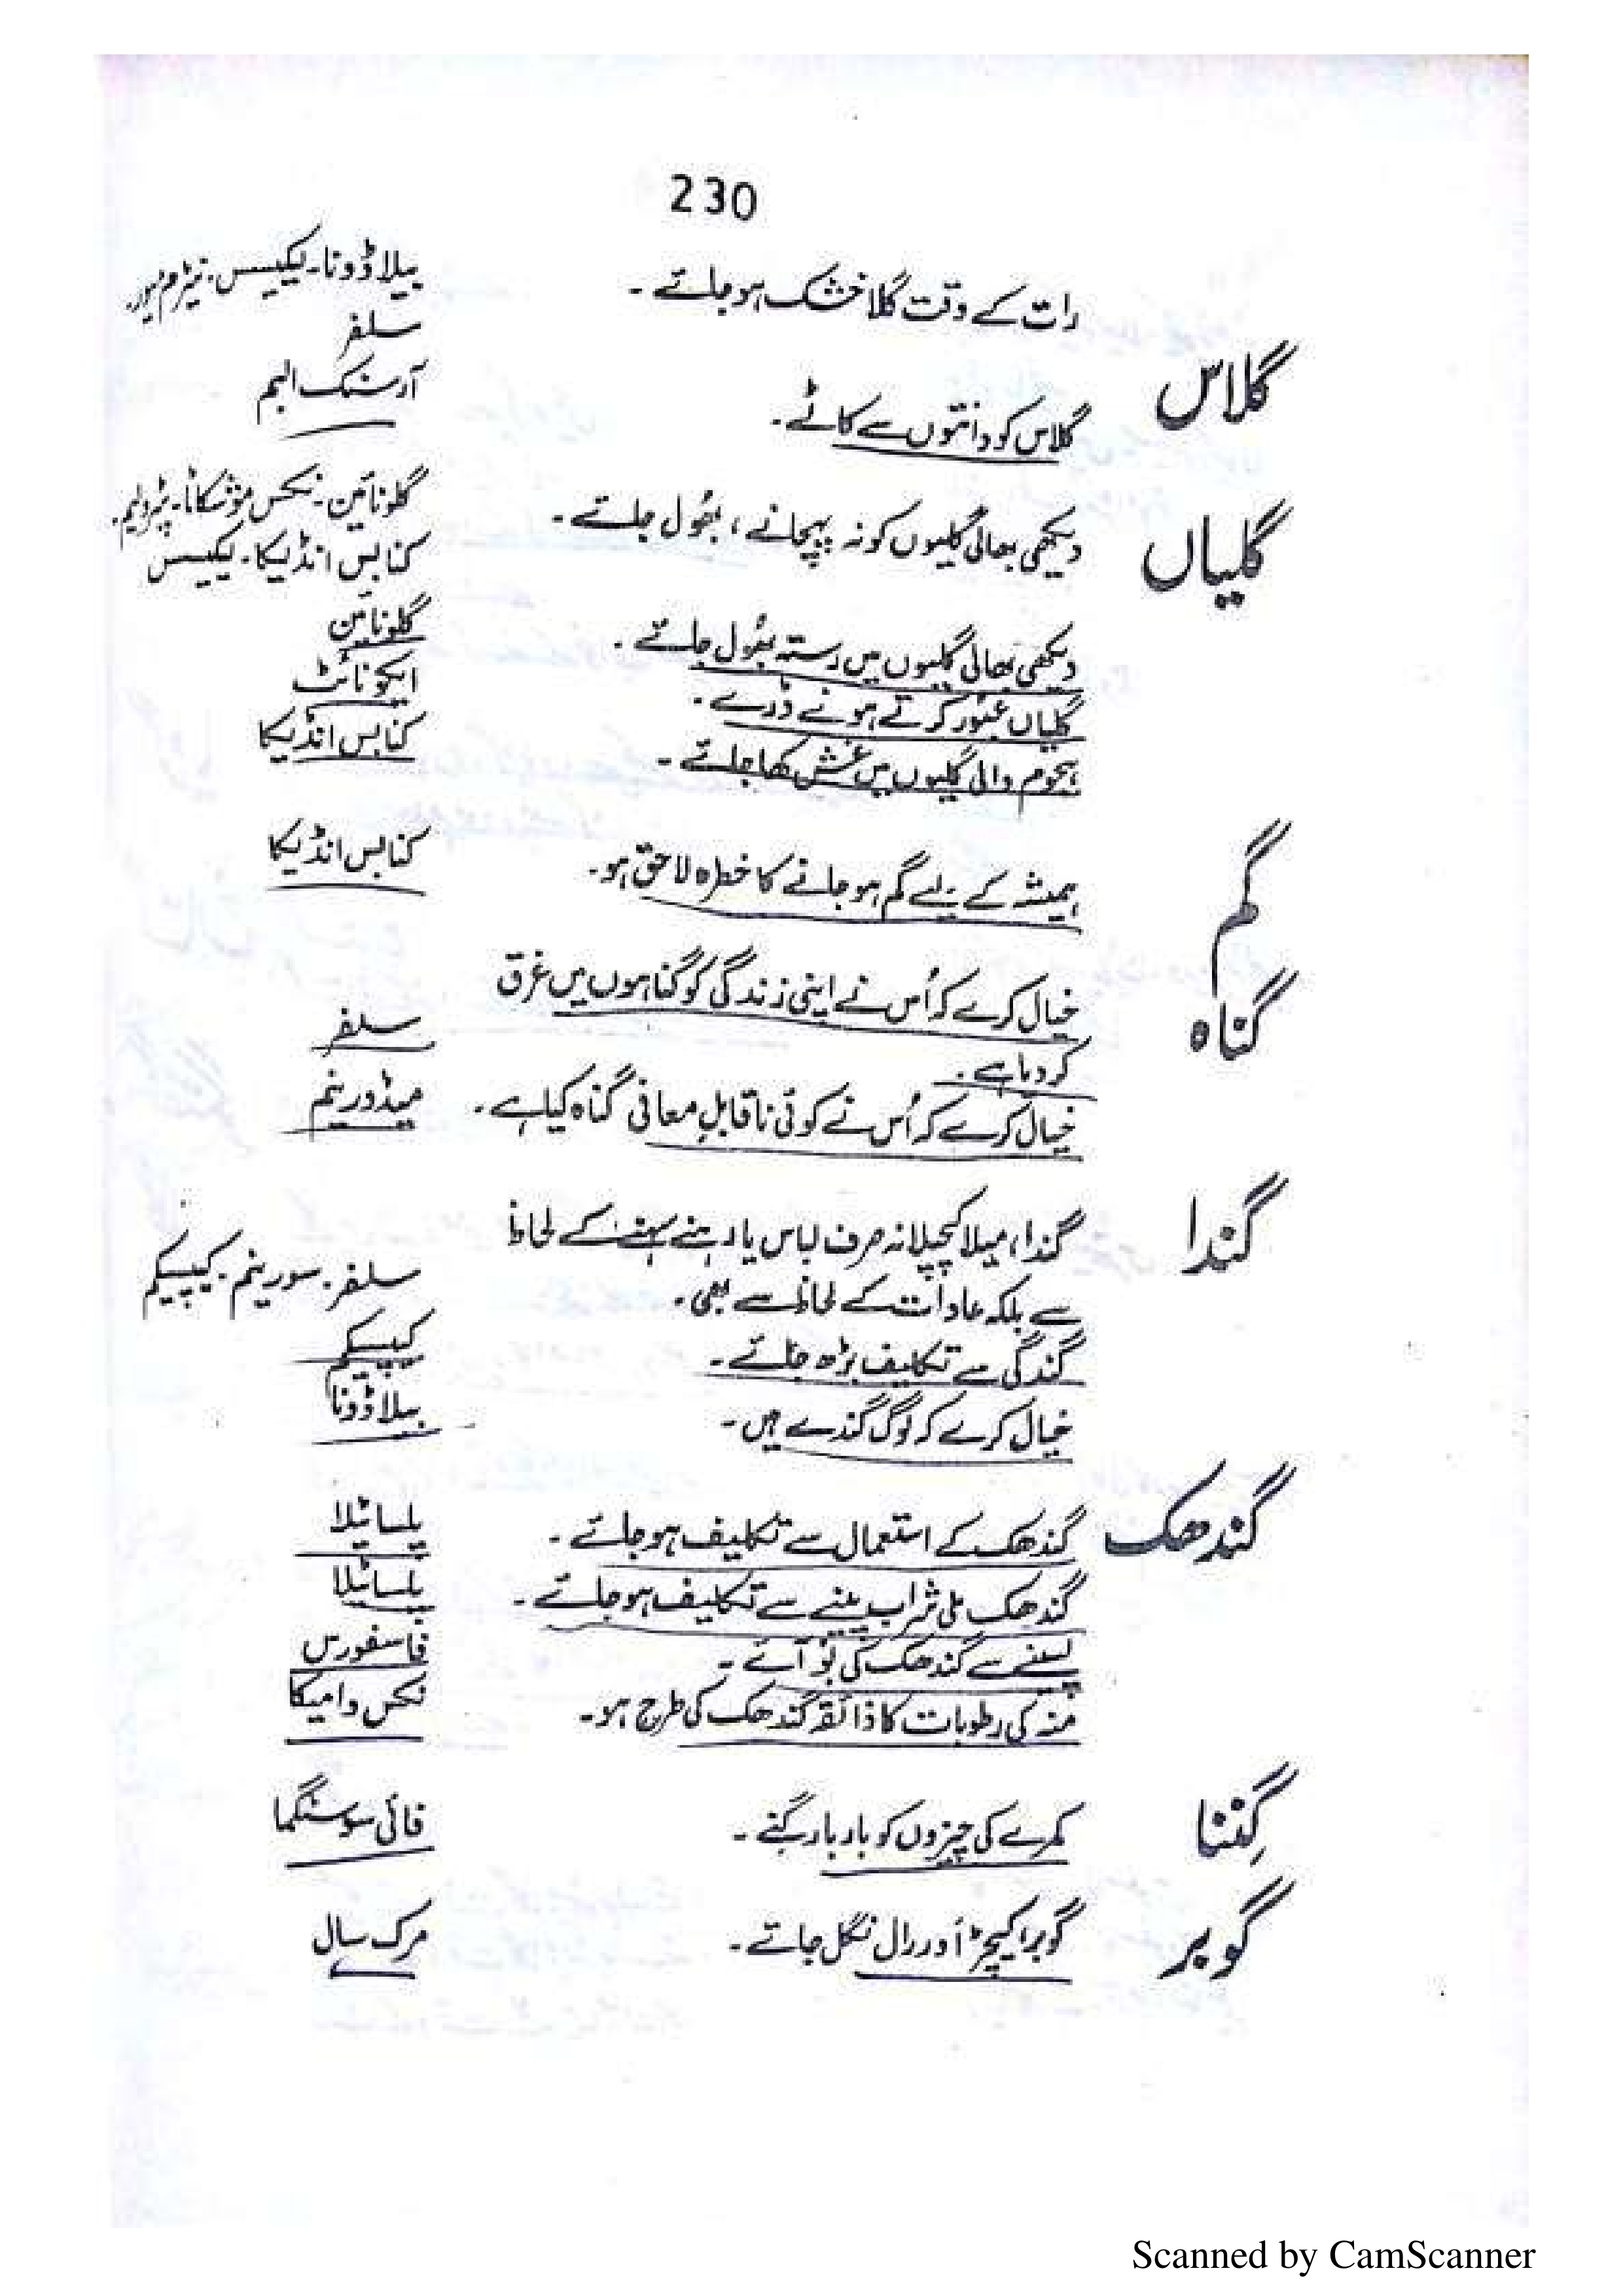 230
رات کے وقت گلا خشک ہو جائے ۔ بیلا ڈونا ۔ لیکیسس ۔ نیٹرم میور ۔
سلفر
گلاس
گلاس کو دانتوں سے کاٹے ۔ آرسنک البم
گلیاں
دیکھی بھالی گلیوں کو نہ پہچانے ، بھُول جائے ۔ گلونائن ۔ نکس موشکاٹا ۔ پٹرولیم ۔
کنابس انڈیکا ۔ لیکیسس
دیکھی بھالی گلیوں میں رستہ بھُول جائے ۔ گلونائن
گلیاں عبُور کرتے ہوئے ڈرے ۔ ایکونائٹ
ہجوم والی گلیوں میں غش کھا جائے ۔ کنابس انڈیکا
گم
ہمیشہ کے لیے گم ہو جانے کا خطرہ لاحق ہو ۔ کنابس انڈیکا
گناہ
خیال کرے کہ اُس نے اپنی زندگی کو گناہوں میں غرق
کر دیا ہے ۔ سلفر
خیال کرے کہ اُس نے کوئی ناقابلِ معافی گناہ کیا ہے ۔ میڈورینم
گندا
گندا ، میلا کچیلا نہ صرف لباس یا رہنے سہنے کے لحاظ
سے بلکہ عادات کے لحاظ سے بھی ۔ سلفر ۔ سورینم ۔ کیپسیکم
گندگی سے تکلیف بڑھ جائے ۔ کیپسیکم
خیال کرے کہ لوگ گندے ہیں ۔ بیلا ڈونا
گندھک
گندھک کے استعمال سے تکلیف ہو جائے ۔ پلساٹیلا
گندھک ملی شراب پینے سے تکلیف ہو جائے ۔ پلساٹیلا
پسینے سے گندھک کی بُو آئے ۔ فاسفورس
منہ کی رطوبات کا ذائقہ گندھک کی طرح ہو ۔ نکس وامیکا
گِننا
کمرے کی چیزوں کو بار بار گنے ۔ فائی سوسٹگما
گوبر
گوبر ، کیچڑ اور رال نگل جائے ۔ مرک سال
Scanned by CamScanner